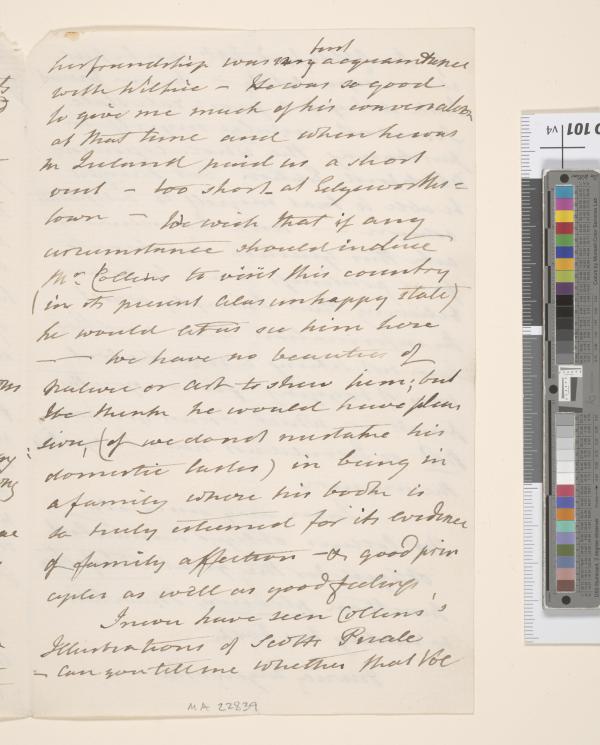 first
her friendship was my acquaintance
with Wilkie – He was so good
to give me much of his conversation
at that time and when he was
in Ireland paid us a short
visit – too short at Edgeworths=
town – We wish that if any
circumstance should induce
Mr. Collins to visit this country
(in its present alas unhappy state)
he would let us see him here
— We have no beauties of
Nature or Art to shew him; but
We think he would have pleas
sure, (if we do not mistake his
domestic tastes) in being in
a family where his book is
so truly esteemed for its evidence
of family affection – & good prin
ciples as well as good feelings
I never have seen Collins's
Illustrations of Scotts Pirate
– Can you tell me whether that Vol
MA 22839
101